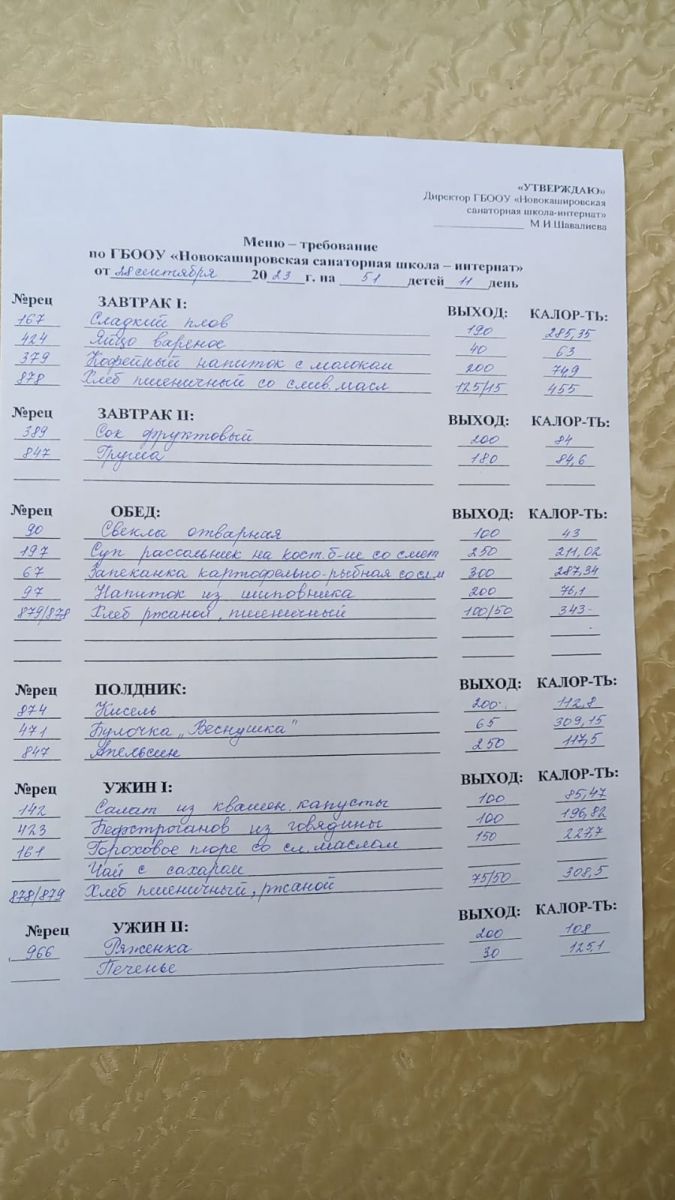 «УТВЕРЖДАЮ»
Директор ГБООУ «Новокашировская
санаторная школа-интернат»
____________ М.И.Шавалиева
Меню – требование
по ГБООУ «Новокашировская санаторная школа – интернат»
от 28 сентября 2023 г. на 51 детей 11 день
№рец ЗАВТРАК I: ВЫХОД: КАЛОР-ТЬ:
167 Сладкий плов 190 285,35
424 Яйцо вареное 40 63
379 Кофейный напиток с молоком 200 74,9
878 Хлеб пшеничный со слив. масл 125/15 455
№рец ЗАВТРАК II: ВЫХОД: КАЛОР-ТЬ:
389 Сок фруктовый 200 84
847 Груша 180 84,6
№рец ОБЕД: ВЫХОД: КАЛОР-ТЬ:
90 Свекла отварная 100 43
197 Суп рассольник на кост. б-не со смет 250 211,02
67 Запеканка картофельно-рыбная со сл.м 300 287,34
97 Напиток из шиповника 200 76,1
879/878 Хлеб ржаной, пшеничный 100/50 343
№рец ПОЛДНИК: ВЫХОД: КАЛОР-ТЬ:
874 Кисель 200 112,8
471 Булочка „Веснушка" 65 309,15
847 Апельсин 250 117,5
№рец УЖИН I: ВЫХОД: КАЛОР-ТЬ:
142 Салат из квашен. капусты 100 85,47
423 Бефстроганов из говядины 100 196,82
161 Гороховое пюре со сл. маслом 150 227,7
Чай с сахаром
878/879 Хлеб пшеничный, ржаной 75/50 308,5
№рец УЖИН II: ВЫХОД: КАЛОР-ТЬ:
966 Ряженка 200 108
Печенье 30 125,1